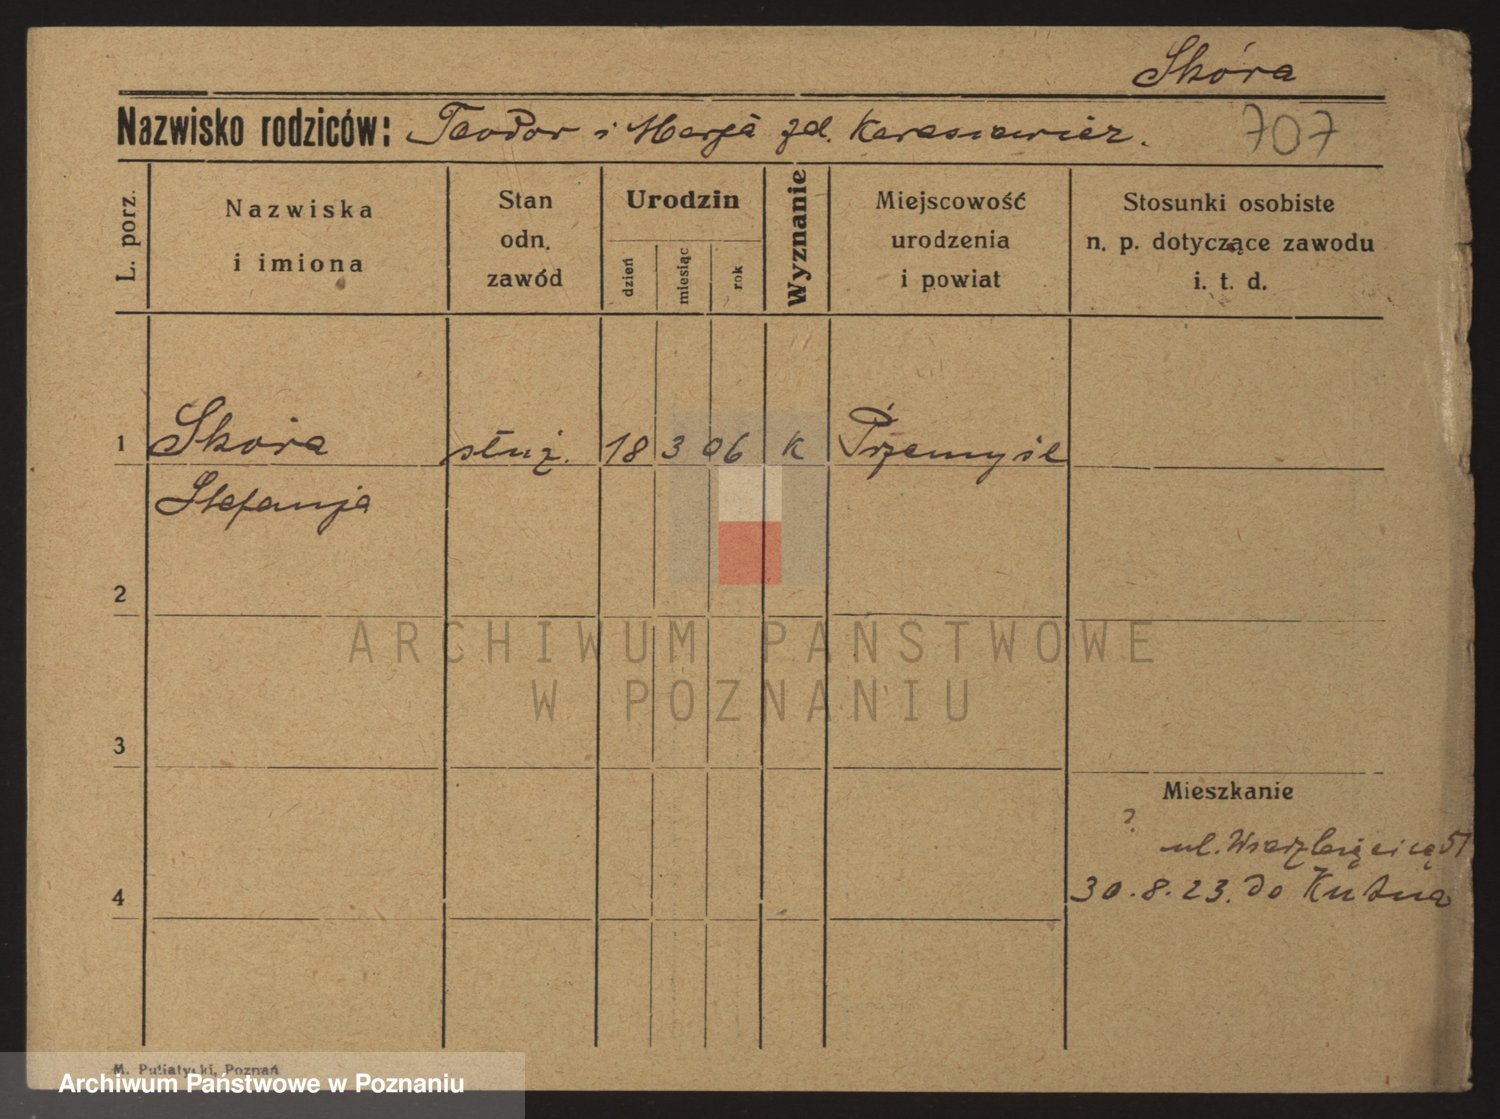 Skóra
Nazwisko rodziców: Teodor i Marja zd. Karasiewicz.
707
L. porz.
Nazwiska
i imiona
Stan
odn.
zawód
Urodzin
dzień
miesiąc
rok
Wyznanie
Miejscowość
urodzenia
i powiat
Stosunki osobiste
n. p. dotyczące zawodu
i. t. d.
1 Skóra służ. 18 3 06 K Przemyśl
Stefanja
2
ARCHIWUM PAŃSTWOWE
W POZNANIU
3
Mieszkanie
?
ul. Wierzbięcice 51
4
30.8.23. do Kutna
M. Putiatycki, Poznań
Archiwum Państwowe w Poznaniu